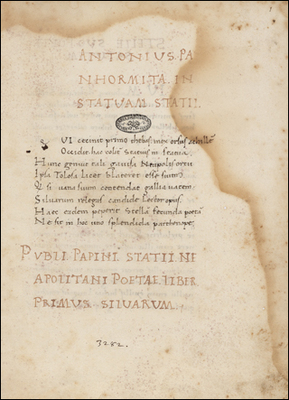 ANTONIUS PA
NHORMITA IN
STATUAM STATII.
QUI cecinit primo thebas mox orsus
Occidit hac
Hunc genuit tali gavisa Neapolis ortu
Ipsa Tolosa licet blateret esse suum
Q si vana suum contendat gallia vatem
Siluarum relegas candide lector opus
Haec eadem peperit Stellā fecunda poetā
Ne sit in hoc uno splendida parthenope
PUBLII PAPINI STATII NE
APOLITANI POETAE LIBER
PRIMUS SILUARUM.
3282.